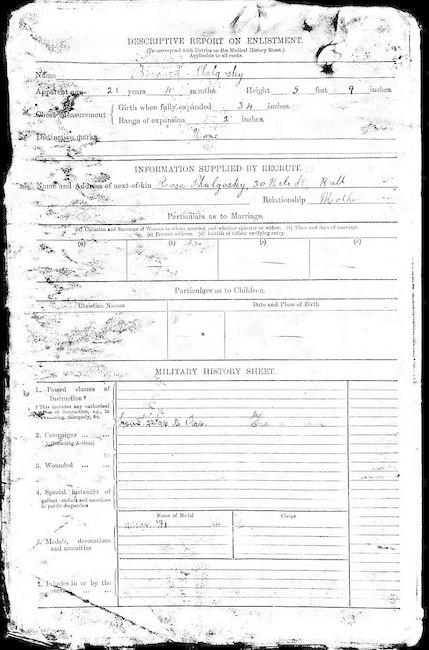 DESCRIPTIVE REPORT ON ENLISTMENT.
(To correspond with Entries on the Medical History Sheet.)
Applicable to all ranks.
Name Phalgosky
Apparent age 21 years months. Height 5 feet 9 inches.
Chest Measurement { Girth when fully expanded 34 inches.
Range of expansion 2 inches.
Distinctive marks None
INFORMATION SUPPLIED BY RECRUIT.
Name and Address of next-of-kin Rose Phalgosky, 30 Nile St Hull
Relationship Mother
Particulars as to Marriage.
(a) Christian and Surname of Woman to whom married, and whether spinster or widow. (b) Place and date of marriage.
(c) Present address. (d) Initials of Officer verifying entry.
(a) (b) (c) (d)
Particulars as to Children.
Christian Names Date and Place of Birth
MILITARY HISTORY SHEET.
1. Passed classes of
Instruction†
†This includes any authorised
of instruction, e.g., in
chiropody, &c.
2. Campaigns ... ...
(including Actions)
3. Wounded ... ...
4. Special instances of
gallant conduct and mentions
in public despatches
Name of Medal Clasps
5. Medals, decorations
and annuities
Injuries in or by the
service